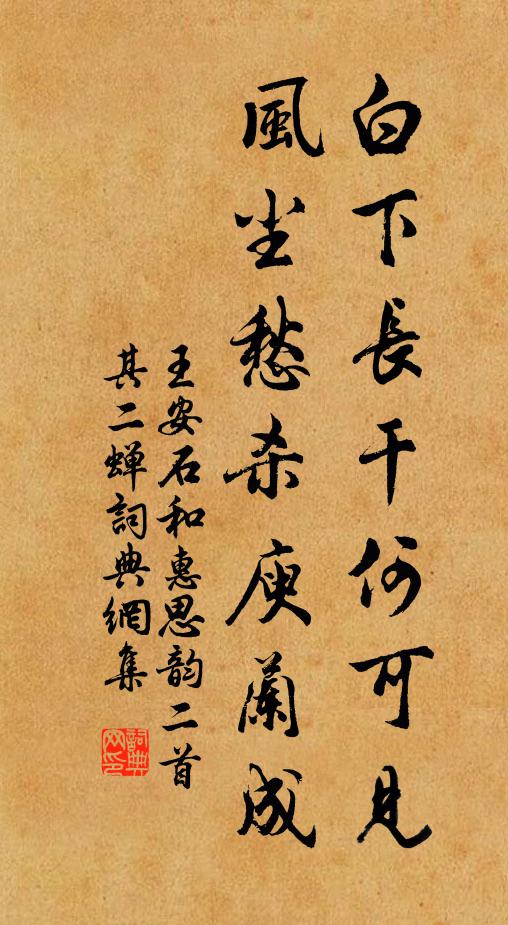 白下長干何可見
風尘愁杀庾蘭成
王安石和惠思韵二首
其二蝉詞典網集
詞典网印